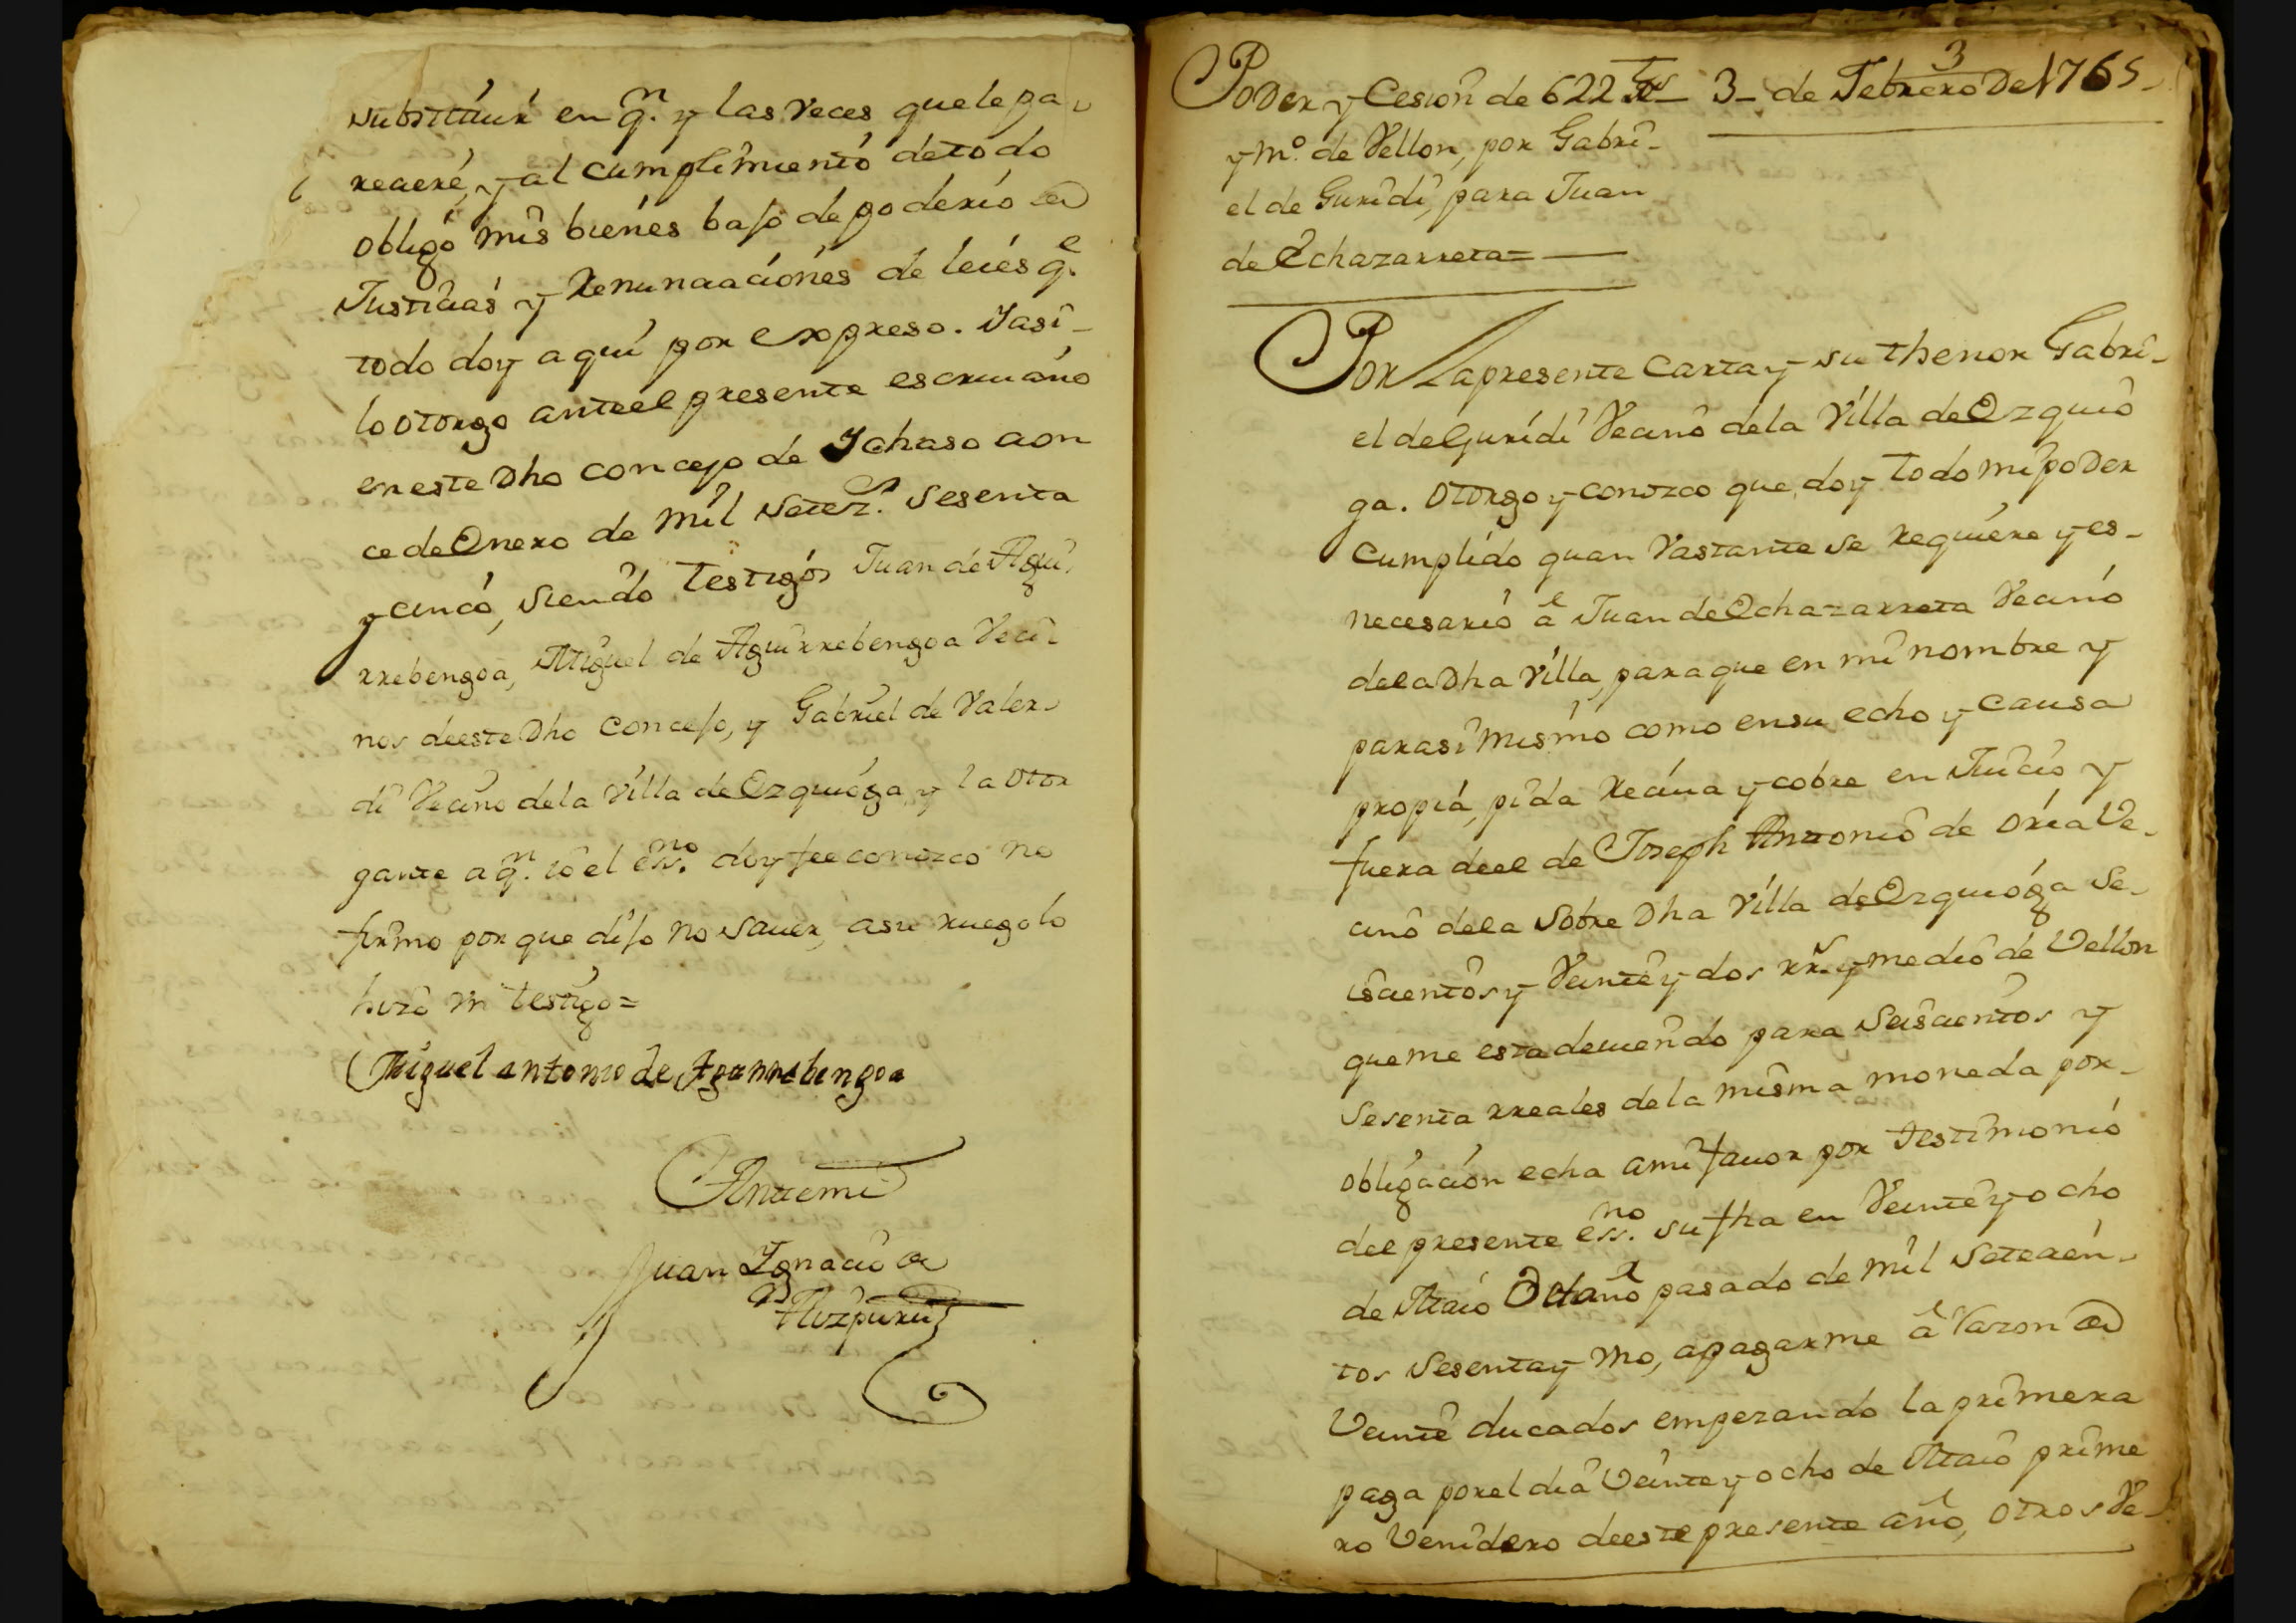 substituir en q.n y las veces que le pa
reciere, y al cumplimiento de todo
obligo mis bienes bajo de poderio de
Justicias y Renunciaciones de leies q.e
todo doy aqui por expreso. Y asi
lo otorgo ante el presente escriuano
en este Dho concejo de Ychaso a on
ce de Enero de mil setez.s sesenta
y cinco, siendo testigos Juan de Agui
rrebengoa, Miguel de Aguirrebengoa veci
nos de este Dho concejo, y Gabriel de Valer
di Vecino de la Villa de Ezquioga, y la otor
gante a q.n io el ess.no doy fee conozco no
firmo por que dijo no sauer, a su ruego lo
hizo un testigo=
Miguel antonio de Aguirrebengoa
Antemi
Juan Ygnacio de
Aizpuru
3
Poder y Cesion de 622 rr.s 3 de Febrero De 1765
y m.o de Vellon, por Gabri-
el de Guridi, para Juan
de Echazarreta=
Por La presente Carta y su thenor Gabri-
el de Guridi Vecino de la Villa de Ezquio
ga. Otorgo y conozco que doy todo mi poDer
Cumplido quan Vastante se requiere y es-
necesario â Juan de Echazarreta Vecino
de la Dha Villa, para que en mi nombre y
para si mismo como en su echo y causa
propia, pida Reciua y cobre en Juicio y
fuera de el de Joseph Antonio de Oria Ve-
cino de la sobre Dha Villa de Ezquioga se-
iscientos y Veinte y dos rr.s y medio de Vellon
que me esta deuiendo para Seiscientos y
Sesenta rreales de la misma moneda por-
obligacion echa a mi fauor por testimonio
del presente ess.no su fha en Veinte y ocho
de Maio Del año pasado de mil setecien-
tos sesenta y uno, a pagarme â razon de
Veinte ducados empezando la primera
paga por el dia Veinte y ocho de Maio prime
ro Venidero de este presente año, otros Ve-